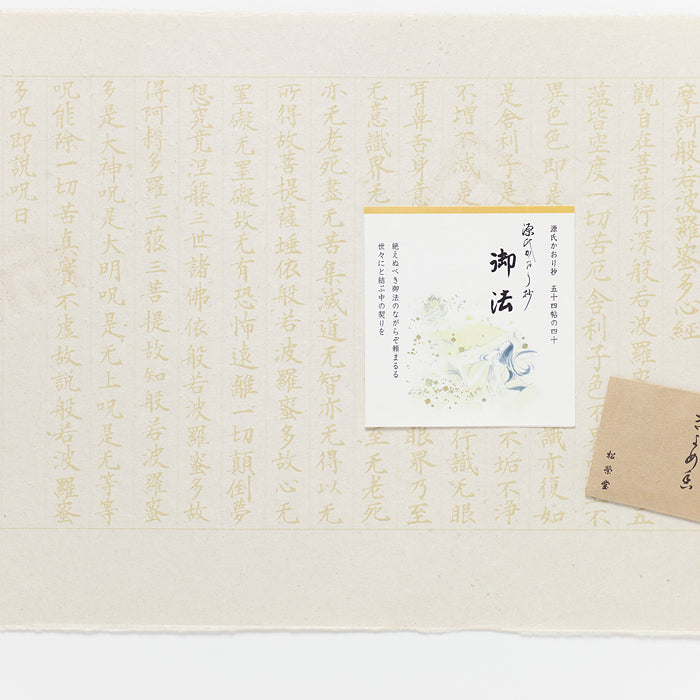 摩訶般若波羅蜜多心経
觀自在菩薩行深般若波羅蜜
五
蘊皆空度一切苦厄舎利子色不
不
異色色即是
識亦復如
是舎利子是
不垢不浄
不増不減是
行識无眼
耳鼻舌身意
眼界乃至
无意識界无
至无老死
亦无老死盡无苦集滅道无智亦无得以无
所得故菩提薩埵依般若波羅蜜多故心无
罣礙无罣礙故无有恐怖遠離一切顛倒夢
想究竟涅槃三世諸佛依般若波羅蜜多故
得阿耨多羅三藐三菩提故知般若波羅蜜
多是大神呪是大明呪是无上呪是无等等
呪能除一切苦真實不虚故説般若波羅蜜
多呪即説呪曰
源氏かおり抄 五十四帖の四十
源氏かおり抄
御法
絶えぬべき御法のながらぞ頼まるる
世々にと結ぶ中の契りを
きよめ香
松榮堂